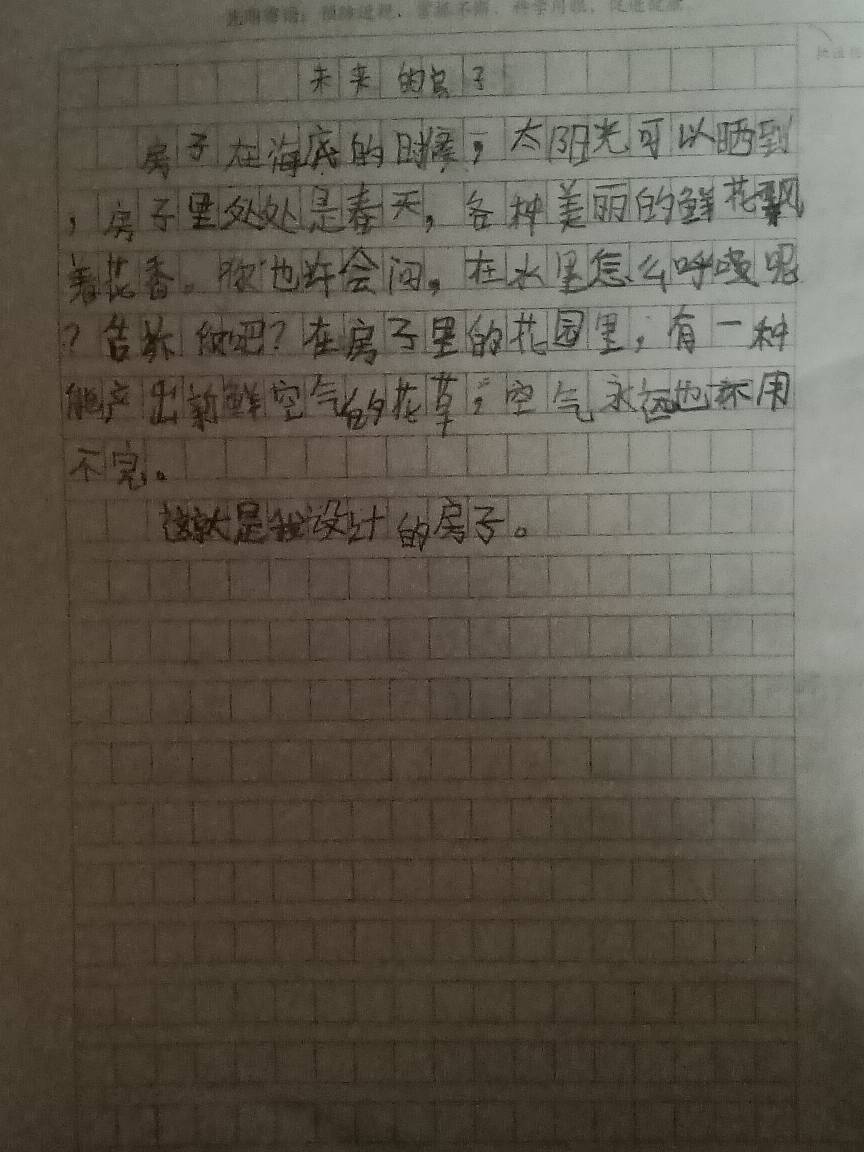 连期寄语：预防近视，常抓不懈，科学用眼，促进健康
未来的房子
房子在海底的时候，太阳光可以晒到
，房子里处处是春天，各种美丽的鲜花飘
着花香。你也许会问，在水里怎么呼吸呢
？告诉你吧？在房子里的花园里，有一种
能产出新鲜空气的花草，空气永远也不用
不完。
这就是我设计的房子。